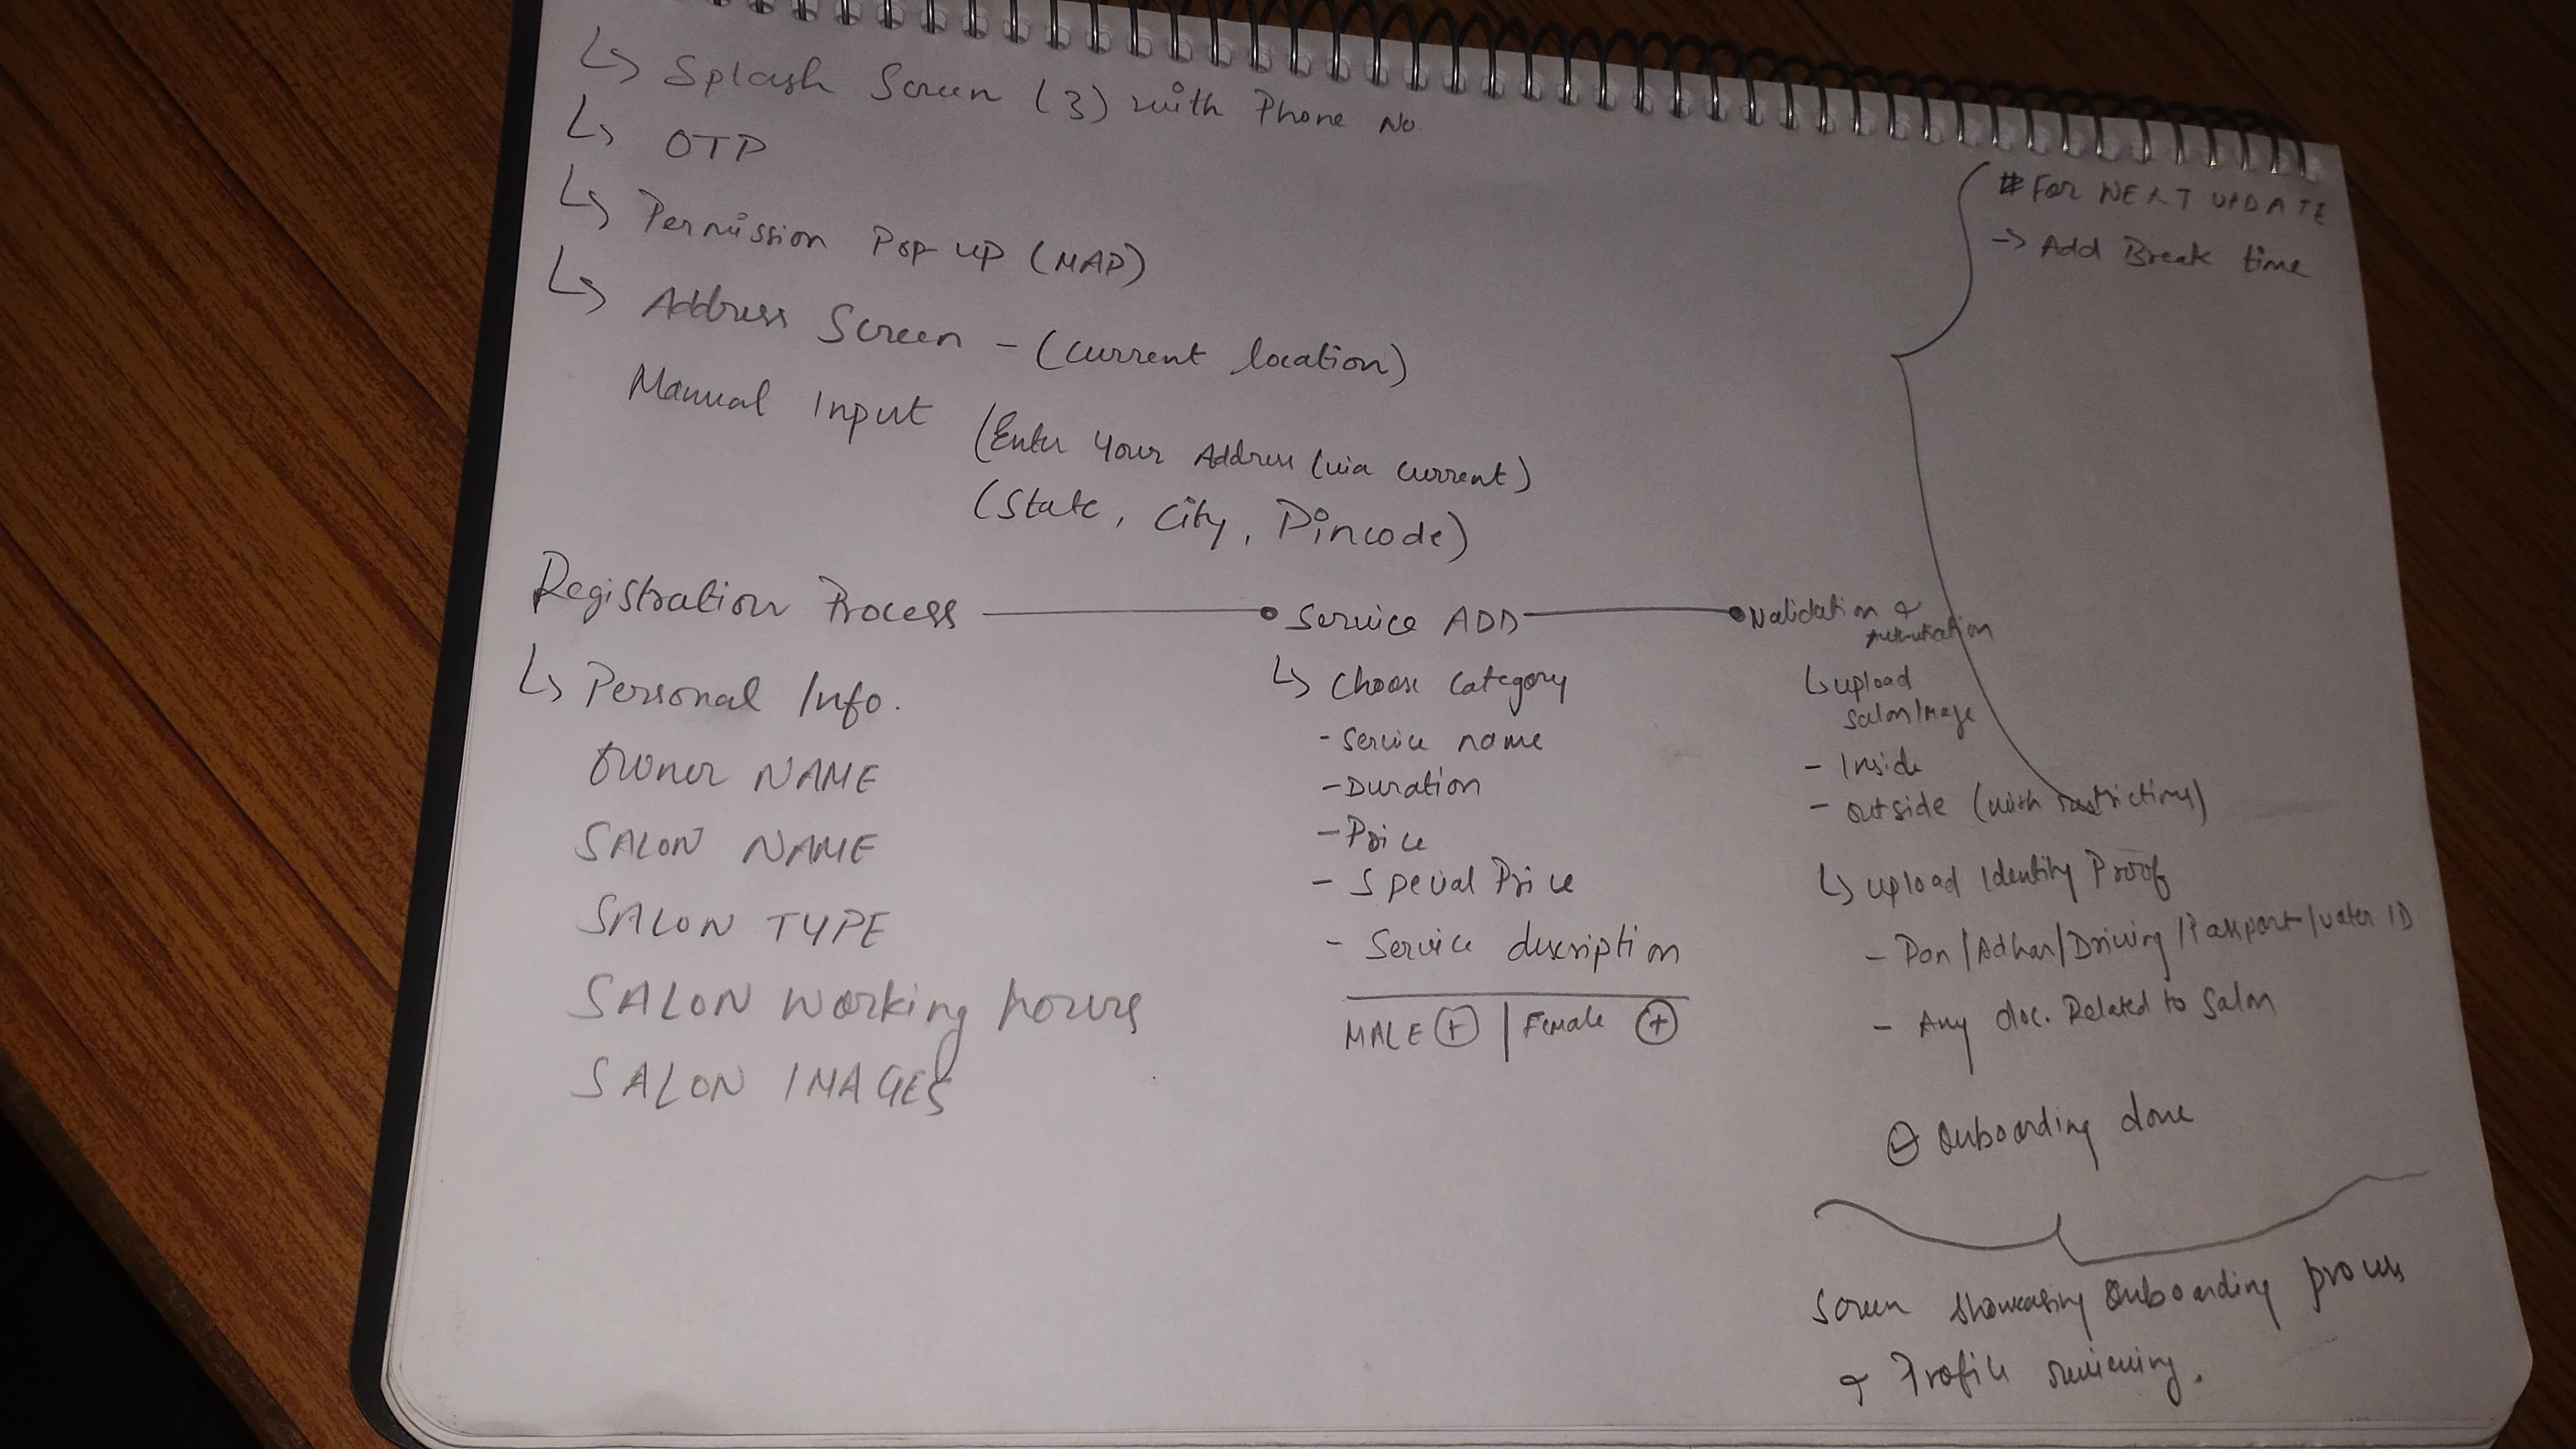 ↳ Splash Screen (3) with Phone No.
↳ OTP
↳ Permission Pop-up (MAP)
↳ Address Screen - (current location)
Manual Input (Enter Your Address (via current)
(State, City, Pincode)
# FOR NEXT UPDATE
-> Add Break time
Registration Process
↳ Personal Info.
Owner NAME
SALON NAME
SALON TYPE
SALON Working hours
SALON IMAGES
Service ADD
↳ Choose Category
- Service name
- Duration
- Price
- Special Price
- Service description
MALE + | Female +
Validation &
↳ upload
Salon Image
- Inside
- outside (with restrictions)
↳ upload Identity Proof
- Pan/Adhar/Driving/Passport/voter ID
- Any doc. Related to Salon
Onboarding done
Screen showcasing Onboarding process
& Profile reviewing.